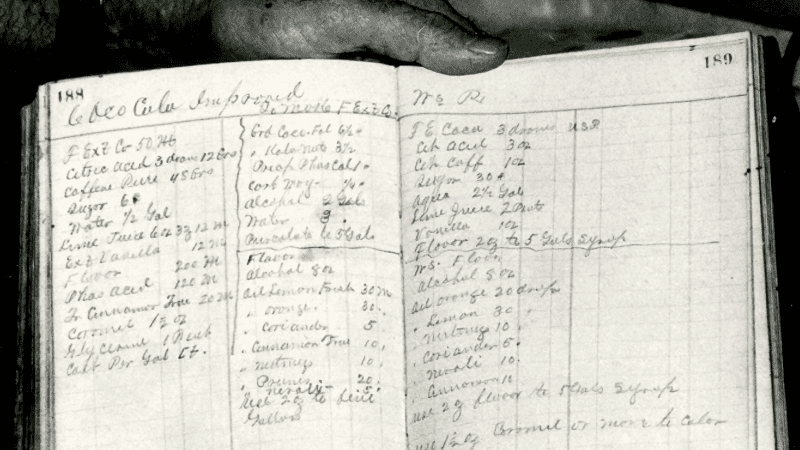 188
Coco Cola Improved
F Ext Co 50 M
Citric acid 3 drams 12 Grs
Caffene Pure 48 Grs
Sugar 6
Water 1/2 Gal
Lime Juice 6 oz 3z 12 M
Ext Vanilla 12 M
Flavor
Phos Acid 120 M
Tr Cinnamon True 20 M
Coromel 1 1/2 oz
Glycerine
Cost Per Gal
To Make F Ext Co.
Grd Coco
" Kola nuts 3 1/2
Alcohol 2 Gals
Water
Purcolate to 5 Gals
Flavor
Alcohol 8 oz
Oil Lemon 30 M
" orange 30
" Coriander 5
" Cinnamon True 10
" Nutmegs 10
" 20
Neroli 5
Use 2 oz to
Gallon
189
F E Coca 3 drams USP
Cit Acid 3 oz
Cit Caff 1 oz
Sugar 30
Aqua 2 1/2 Gals
Lime Juice 2 Pints
Vanilla 1 oz
Flavor 2 oz to 5 Gals Syrup
Flavor
Alcohol 8 oz
Oil Orange 20 drops
" Lemon 30
" Nutmegs 10
" Coriander 5
" Neroli 10
" Cinnamon 10
use 2 oz flavor to 5 Gals Syrup
use 1 1/2 oz or more to Color